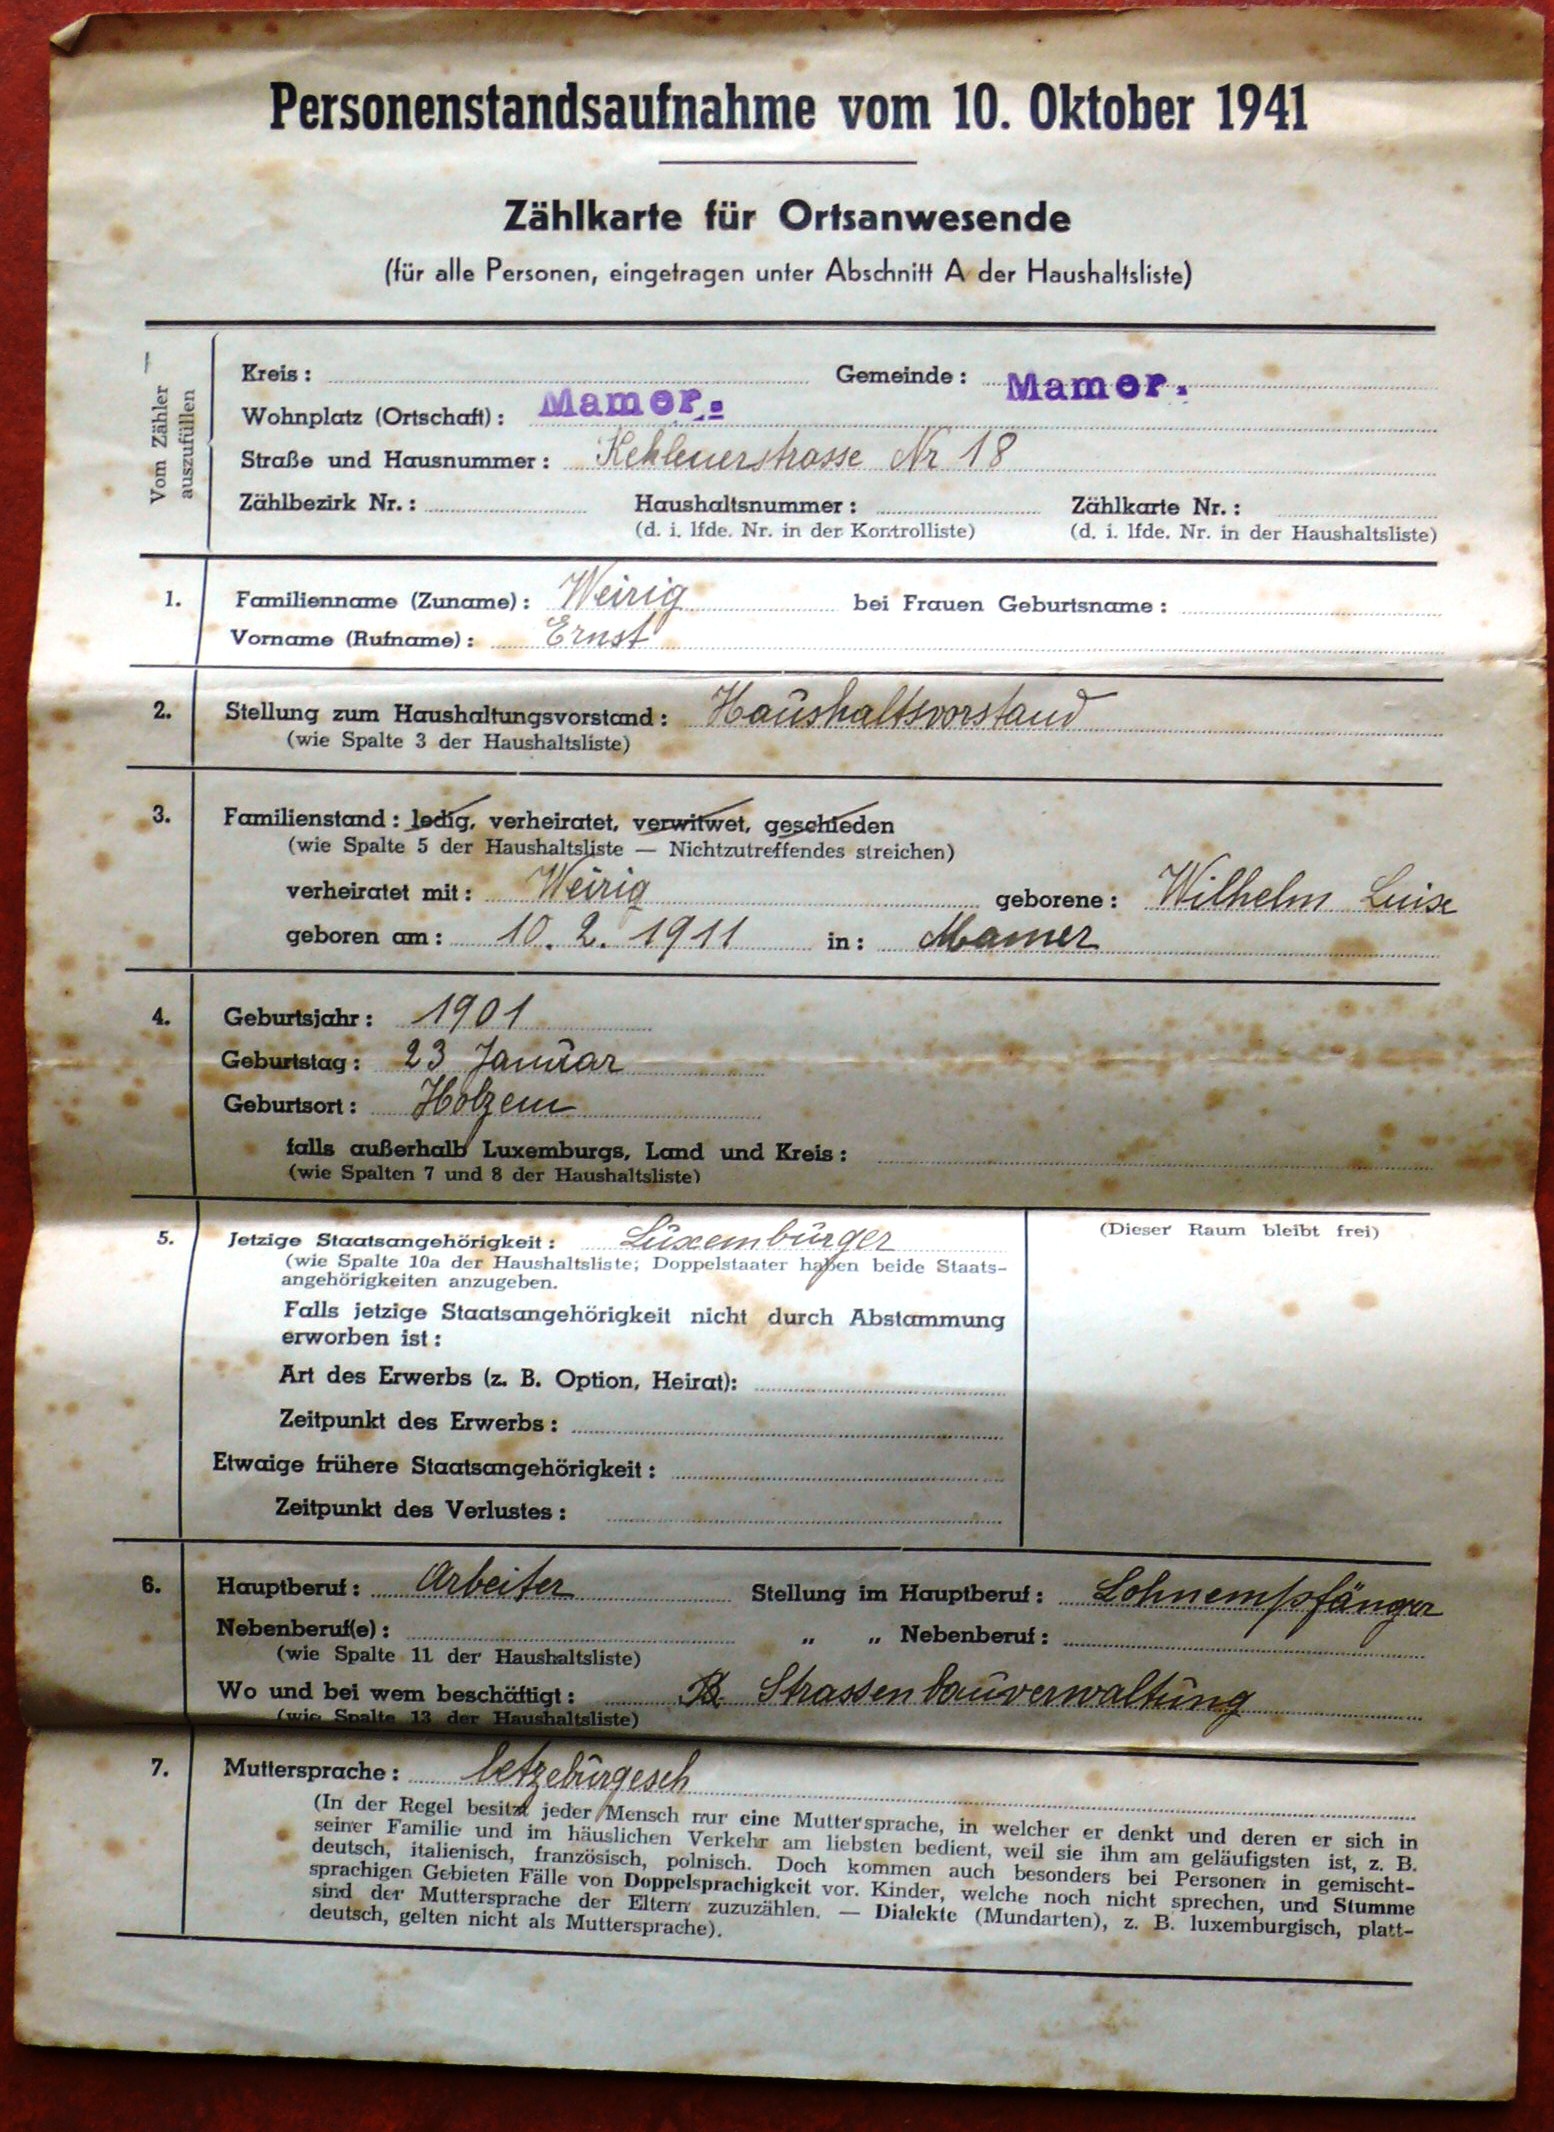 Personenstandsaufnahme vom 10. Oktober 1941
Zählkarte für Ortsanwesende
(für alle Personen, eingetragen unter Abschnitt A der Haushaltsliste)
Vom Zähler
auszufüllen
Kreis: Gemeinde: Mamer.
Wohnplatz (Ortschaft): Mamer.
Straße und Hausnummer: Kehlenerstrasse Nr 18
Zählbezirk Nr.: Haushaltsnummer: Zählkarte Nr.:
(d. i. lfde. Nr. in der Kontrolliste) (d. i. lfde. Nr. in der Haushaltsliste)
1. Familienname (Zuname): Weirig bei Frauen Geburtsname:
Vorname (Rufname): Ernst
2. Stellung zum Haushaltungsvorstand: Haushaltsvorstand
(wie Spalte 3 der Haushaltsliste)
3. Familienstand: ledig, verheiratet, verwitwet, geschieden
(wie Spalte 5 der Haushaltsliste — Nichtzutreffendes streichen)
verheiratet mit: Weirig geborene: Wilhelm Luise
geboren am: 10. 2. 1911 in: Mamer
4. Geburtsjahr: 1901
Geburtstag: 23 Januar
Geburtsort: Holzem
falls außerhalb Luxemburgs, Land und Kreis:
(wie Spalten 7 und 8 der Haushaltsliste)
5. Jetzige Staatsangehörigkeit: Luxemburger (Dieser Raum bleibt frei)
(wie Spalte 10a der Haushaltsliste; Doppelstaater haben beide Staats-
angehörigkeiten anzugeben.
Falls jetzige Staatsangehörigkeit nicht durch Abstammung
erworben ist:
Art des Erwerbs (z. B. Option, Heirat):
Zeitpunkt des Erwerbs:
Etwaige frühere Staatsangehörigkeit:
Zeitpunkt des Verlustes:
6. Hauptberuf: Arbeiter Stellung im Hauptberuf: Lohnempfänger
Nebenberuf(e): „ „ Nebenberuf:
(wie Spalte 11 der Haushaltsliste)
Wo und bei wem beschäftigt: Strassenbauverwaltung
(wie Spalte 13 der Haushaltsliste)
7. Muttersprache: letzeburgesch
(In der Regel besitzt jeder Mensch nur eine Muttersprache, in welcher er denkt und deren er sich in
seiner Familie und im häuslichen Verkehr am liebsten bedient, weil sie ihm am geläufigsten ist, z. B.
deutsch, italienisch, französisch, polnisch. Doch kommen auch besonders bei Personen in gemischt-
sprachigen Gebieten Fälle von Doppelsprachigkeit vor. Kinder, welche noch nicht sprechen, und Stumme
sind der Muttersprache der Eltern zuzuzählen. — Dialekte (Mundarten), z. B. luxemburgisch, platt-
deutsch, gelten nicht als Muttersprache).